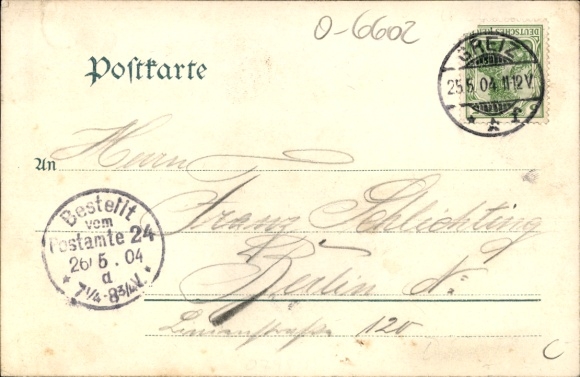 O-6602
Postkarte
DEUTSCHES REICH
GREIZ
25.5.04.11-12V.
* f
An
Herrn
Franz Schlichting
Berlin N.
120
Bestellt
vom
Postamte 24
26/5.04
d
* 7¼-8¾V. *
C